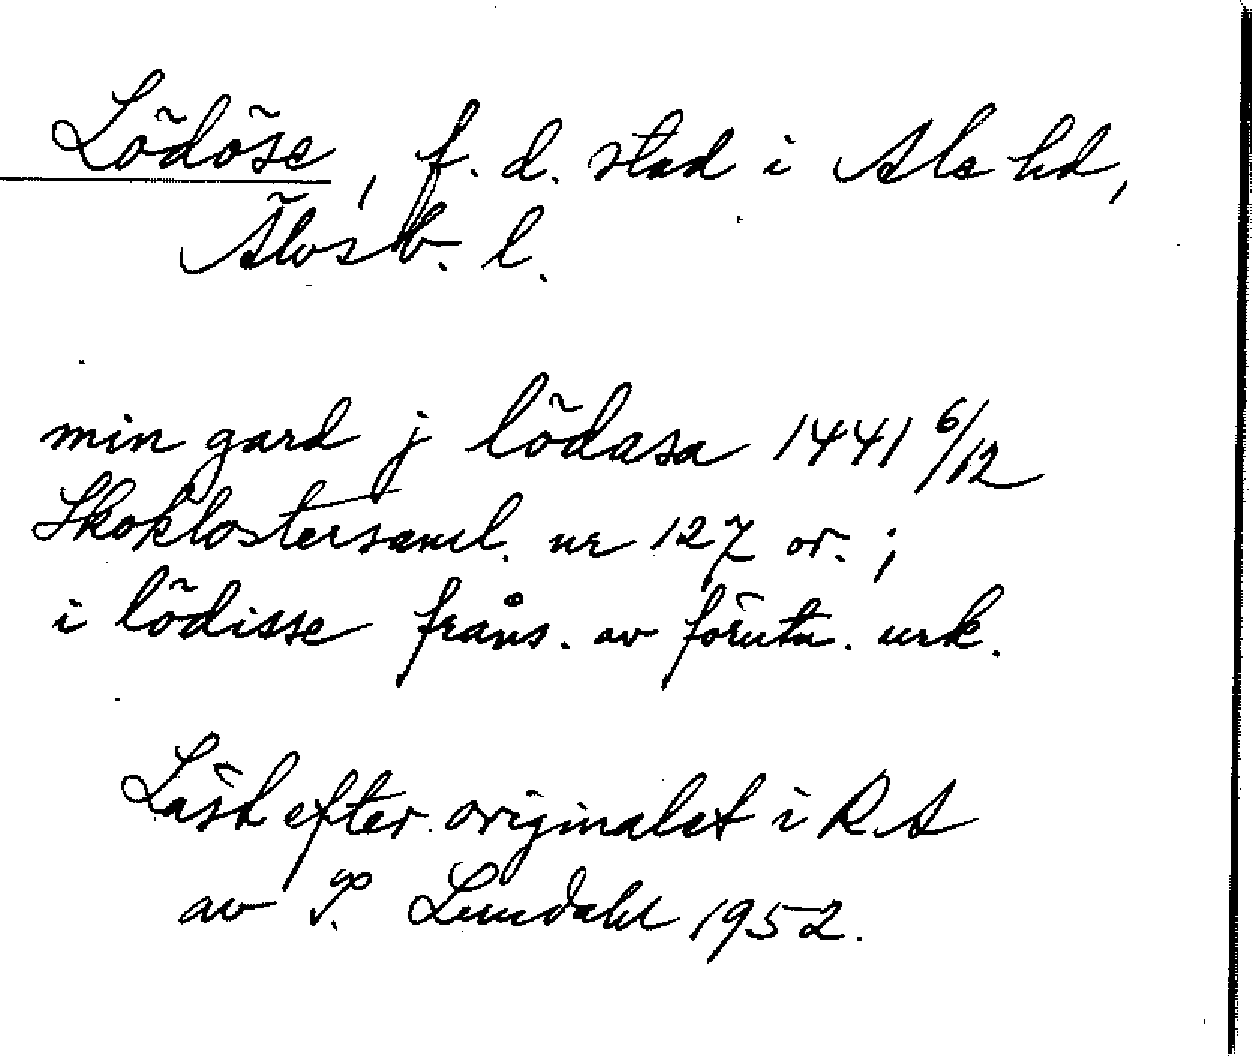 Lödöse, f. d. stad i Ale hd,
Älvsb. l.
min gard j lödasa 1441 6/12
Skoklostersaml. nr 127 or. ;
i lödisse fråns. av förutn. urk.
Läst efter originalet i RA
av I. Lundahl 1952.